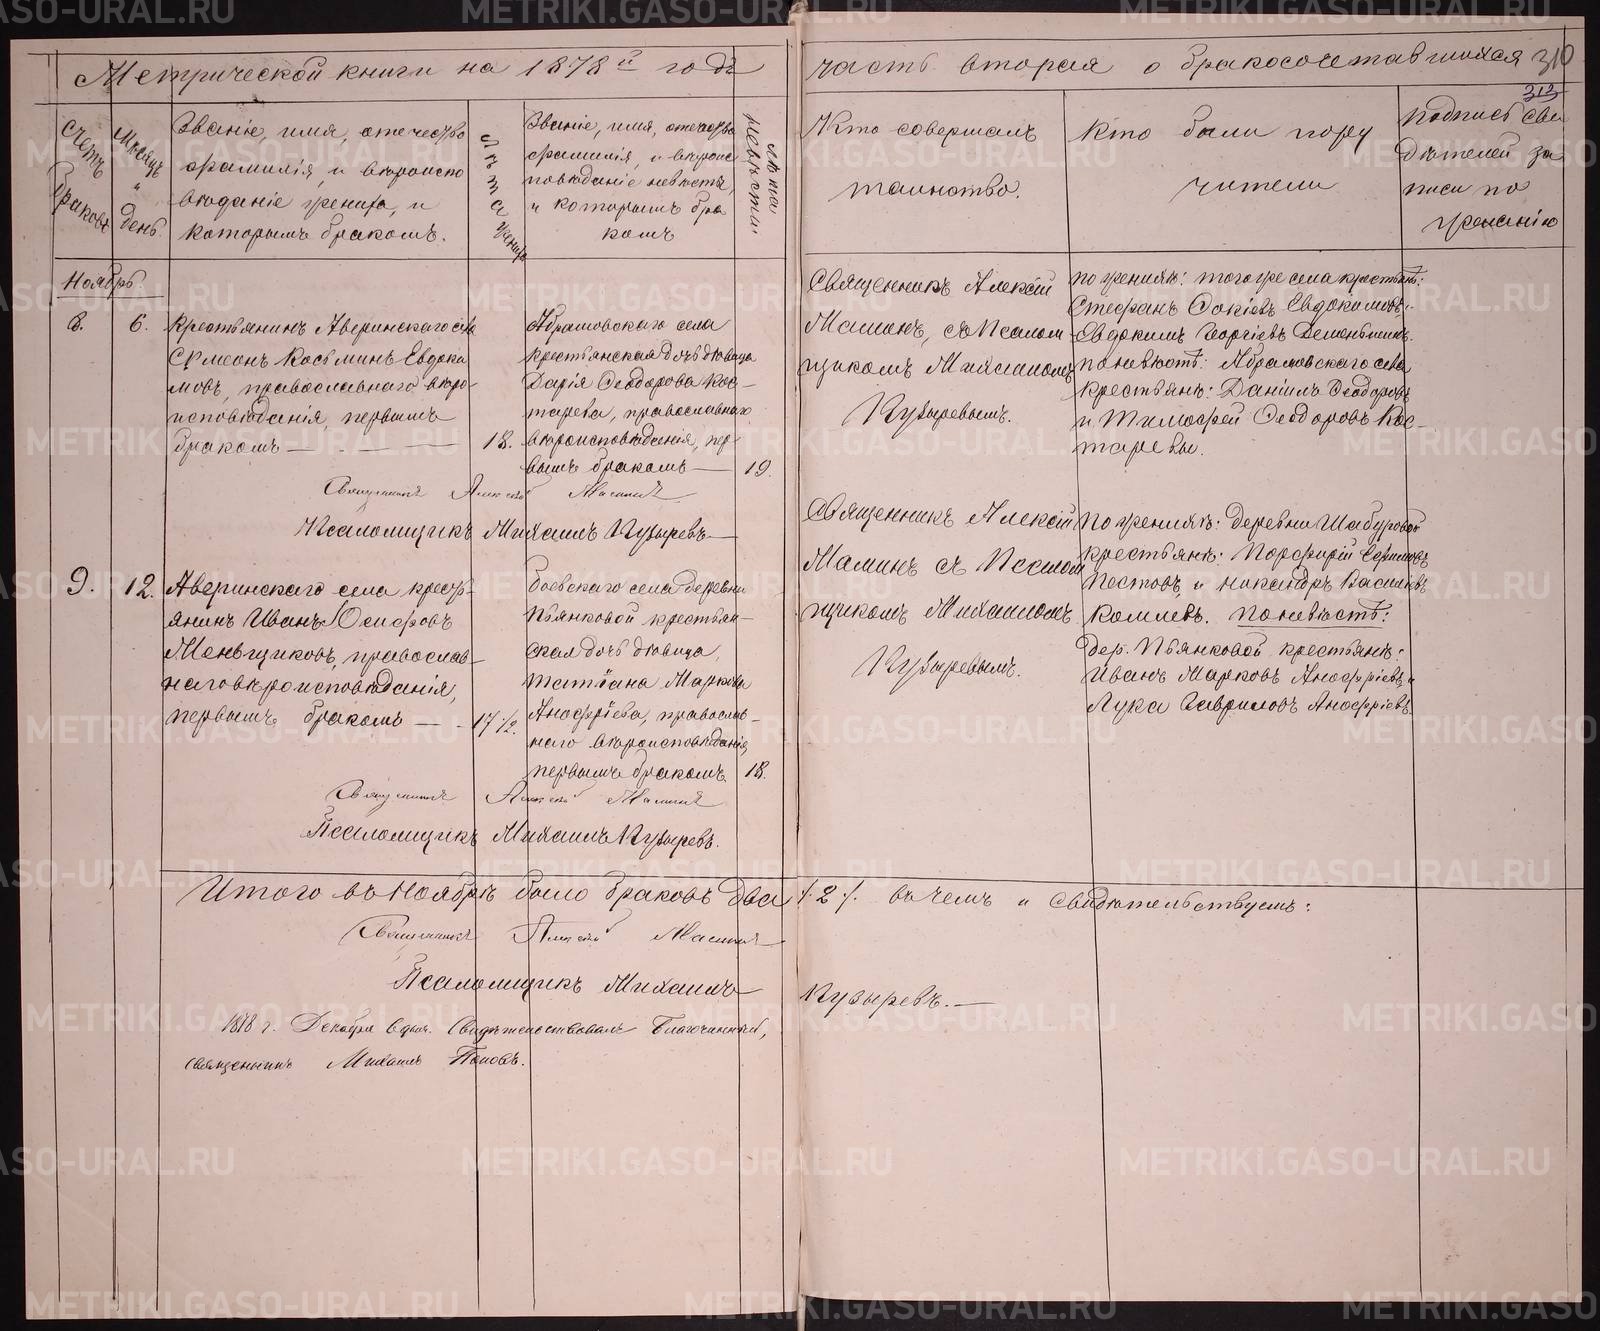 Метрической книги на 1878й годъ
часть вторая о бракосочетавшихся 310
313
Счетъ браковъ
Мѣсяцъ и день
Званіе, имя, отечество
фамилія, и вѣроиспо
вѣданіе жениха, и
которымъ бракомъ.
Лѣта жениха
Званіе, имя, отечество
фамилія, и вѣроис
повѣданіе невѣсты,
и которымъ бра
комъ
Лѣта невѣсты.
Кто совершалъ
таинство.
Кто были пору
чители
Подпись сви
дѣтелей за
писи по
желанію
Ноябрь.
8. 6.
Крестьянинъ Аверинскаго села
Сѵмеонъ Косьминъ Евдоки
мовъ, православнаго вѣро-
исповѣданія, первымъ
бракомъ — 18.
Абрамовскаго села
крестьянская дочь дѣвица
Дарія Ѳеодорова Кос-
тарева, православнаго
вѣроисповѣданія, пер-
вымъ бракомъ — 19.
Священникъ Алексій
Маминъ, съ Псалом-
щикомъ Михаиломъ
Кузыревымъ.
по женихѣ: того же села крестьяне:
Стефанъ Евдокимовъ,
Евдокимъ Георгіевъ
по невѣстѣ: Абрамовскаго села
крестьяне: Даніилъ Ѳеодоровъ
и Тимоѳей Ѳеодоровъ Кос-
таревы.
Священникъ Алексій Маминъ
Псаломщикъ Михаилъ Кузыревъ —
9. 12.
Аверинскаго села кресть-
янинъ Иванъ Осифовъ
Меньщиковъ, православ-
наго вѣроисповѣданія,
первымъ бракомъ — 17 ½.
Боевскаго села деревни
Пьянковой крестьян-
ская дочь дѣвица,
Татіана Маркова
Аноѳріева, православ-
наго вѣроисповѣданія,
первымъ бракомъ 18.
Священникъ Алексій
Маминъ съ Псалом
щикомъ Михаиломъ
Кузыревымъ.
По женихѣ: деревни Шабуровой
крестьяне: Порфирій Ефимовъ
Пестовъ, и Никандръ Васильевъ
Комлевъ. По невѣстѣ:
дер. Пьянковой крестьяне:
Иванъ Марковъ Аноѳріевъ и
Лука Гавриловъ Аноѳріевъ
Священникъ Алексій Маминъ
Псаломщикъ Михаилъ Кузыревъ.
Итого въ Ноябрѣ было браковъ два ·/. 2 ·/. въ чемъ и свидѣтельствуемъ:
Священникъ Алексій Маминъ
Псаломщикъ Михаилъ Кузыревъ. —
1878 г. Декабря 6 дня. Свидѣтельствовалъ Благочинный,
священникъ Михаилъ Поповъ.
METRIKI.GASO-URAL.RU